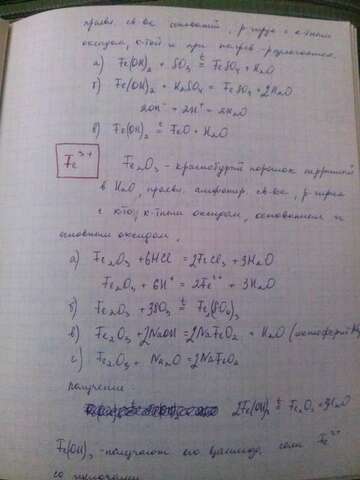 проявл. св-ва оснований, р-рируе с к-тным
оксидом, к-той и при нагрев. разлагается.
а) Fe(OH)₂ + SO₃ =t FeSO₄ + H₂O
б) Fe(OH)₂ + H₂SO₄ = FeSO₄ + 2H₂O
2OH⁻ + 2H⁺ = 2H₂O
в) Fe(OH)₂ =t FeO + H₂O
Fe³⁺ Fe₂O₃ - краснобурый порошок
в H₂O, проявл. амфотер. св-ва,
с к-той, к-тным оксидом, основанием и
основным оксидом.
а) Fe₂O₃ + 6HCl = 2FeCl₃ + 3H₂O
Fe₂O₃ + 6H⁺ = 2Fe³⁺ + 3H₂O
б) Fe₂O₃ + 3SO₃ =t Fe₂(SO₄)₃
в) Fe₂O₃ + 2NaOH = 2NaFeO₂ + H₂O
с) Fe₂O₃ + Na₂O = 2NaFeO₂
получение:
2Fe(OH)₃ =t Fe₂O₃ + 3H₂O
Fe(OH)₃ - получают его взаимод. соли Fe³⁺
со щелочами